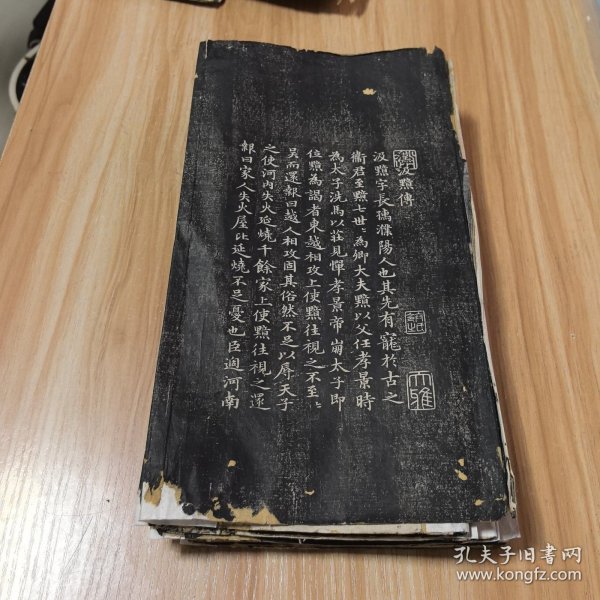 汲黯傳
汲黯字長孺濮陽人也其先有寵於古之
衛君至黯七世世為卿大夫黯以父任孝景時
為太子洗馬以莊見憚孝景帝崩太子即
位黯為謁者東越相攻上使黯往視之不至至
吳而還報曰越人相攻固其俗然不足以辱天子
之使河內失火延燒千餘家上使黯往視之還
報曰家人失火屋比延燒不足憂也臣過河南
大雅
孔夫子旧书网
www.kongfz.com